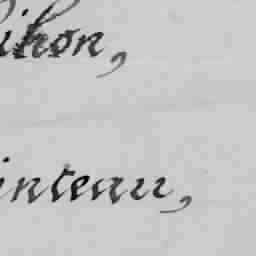 ihon,
inteau,